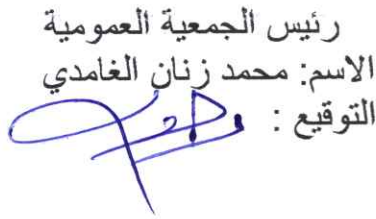 رئيس الجمعية العمومية
الاسم: محمد زنان الغامدي
التوقيع :